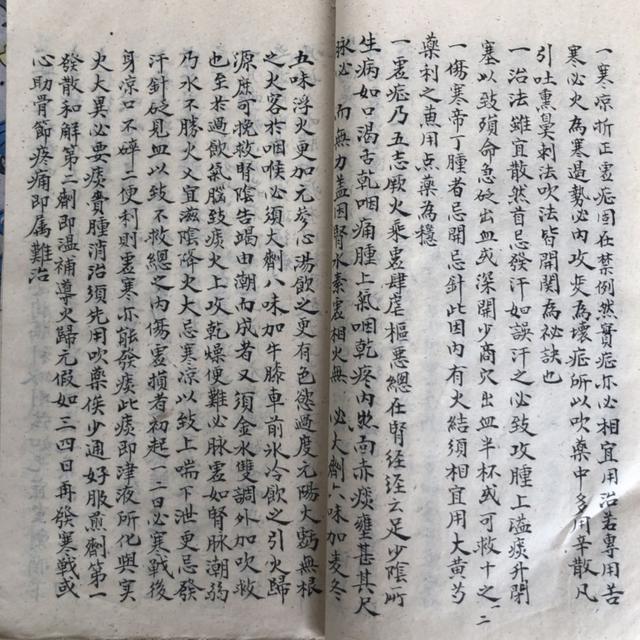 一寒凉折正虚症固在禁例然實症亦必相宜用治若専用苦
寒必火為寒過勢必内攻変為壊症所以吹藥中多用辛散凡
引吐熏臭刺法吹法皆開関為祕訣也
一治法雖宜散然首忌發汗如誤汗之必致攻腫上溢痰升閉
塞以致殞命急砭出血或深開少商穴出血半杯或可救十之一二
一傷寒帝丁腫者忌開忌針此因内有火結須相宜用大黄芍
藥利之黄用点藥為穏
一虚症乃五志厥火乘虚肆虐樞悪總在肾経経云足少陰所
生病如口渴舌乾咽痛腫上氣咽乾疼内燃而赤痰壅甚其尺
脉必 而無力盖因肾水素虚相火無 必大劑八味加麦冬
五味浮火更加元參心湯飲之更有色慾過度元陽大虧無根
之火客於咽喉必須大劑八味加牛膝車前氷冷飲之引火歸
源庶可挽救腎陰告竭由潮而成者又須金水雙調外加吹救
也至若過飲氣腦致痰火上攻乾燥便難必脉虚如腎脉潮弱
乃水不勝火又宜滋陰降火大忌寒凉以致上喘下泄更忌發
汗針砭見血以致不救總之内傷虚損者初起一二日必寒戰後
身凉口不碎二便利則虚寒亦能發痰此痰即津液所化與实
火大異必要痰費腫消治須先用吹藥俟少通好服煎劑第一
發散和解第二劑即温補導火歸元假如三四日再發寒戰或
心助骨節疼痛即属難治